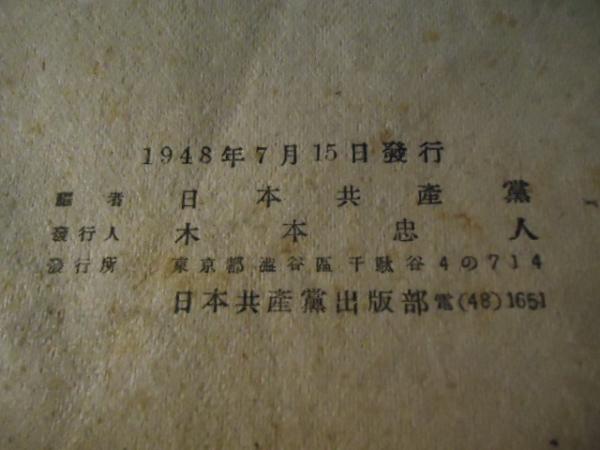 1948年7月15日發行
編者 日本共產黨
發行人 木本忠人
發行所 東京都澁谷區千駄谷4の714
日本共產黨出版部 電(48)1651